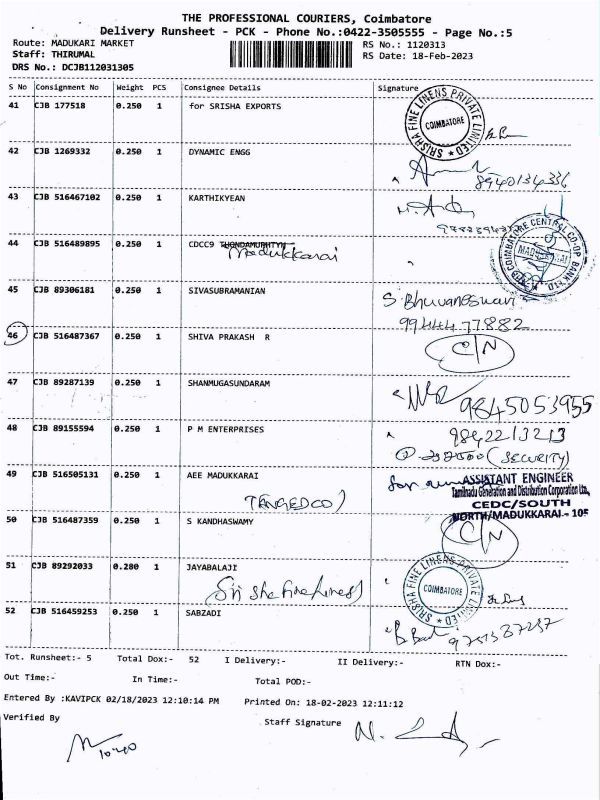 THE PROFESSIONAL COURIERS, Coimbatore
Delivery Runsheet - PCK - Phone No.:0422-3505555 - Page No.:5
Route: MADUKARI MARKET
RS No.: 1120313
Staff: THIRUMAL
RS Date: 18-Feb-2023
DRS No.: DCJB112031305
S No Consignment No Weight PCS Consignee Details Signature
41 CJB 177518 0.250 1 for SRISHA EXPORTS
SRISHA FINE LINENS PRIVATE LIMITED ★ COIMBATORE
42 CJB 1269332 0.250 1 DYNAMIC ENGG
8940134336
43 CJB 516467102 0.250 1 KARTHIKYEAN
44 CJB 516489895 0.250 1 CDCC9
Madukkarai
COIMBATORE CENTRAL CO-OP BANK LTD
45 CJB 89306181 0.250 1 SIVASUBRAMANIAN
S. Bhuvaneswari
9944477882
46 CJB 516487367 0.250 1 SHIVA PRAKASH R
C/N
47 CJB 89287139 0.250 1 SHANMUGASUNDARAM
9845053955
48 CJB 89155594 0.250 1 P M ENTERPRISES
9842213213
(SECURITY)
49 CJB 516505131 0.250 1 AEE MADUKKARAI
TANGEDCO)
for
ASSISTANT ENGINEER
Tamilnadu Generation and Distribution Corporation Ltd.,
CEDC/SOUTH
NORTH/MADUKKARAI - 105
50 CJB 516487359 0.250 1 S KANDHASWAMY
C/N
51 CJB 89292033 0.280 1 JAYABALAJI
SRISHA FINE LINENS PRIVATE LIMITED ★ COIMBATORE
52 CJB 516459253 0.250 1 SABZADI
Tot. Runsheet:- 5 Total Dox:- 52 I Delivery:- II Delivery:- RTN Dox:-
Out Time:- In Time:- Total POD:-
Entered By :KAVIPCK 02/18/2023 12:10:14 PM Printed On: 18-02-2023 12:11:12
Verified By
Staff Signature